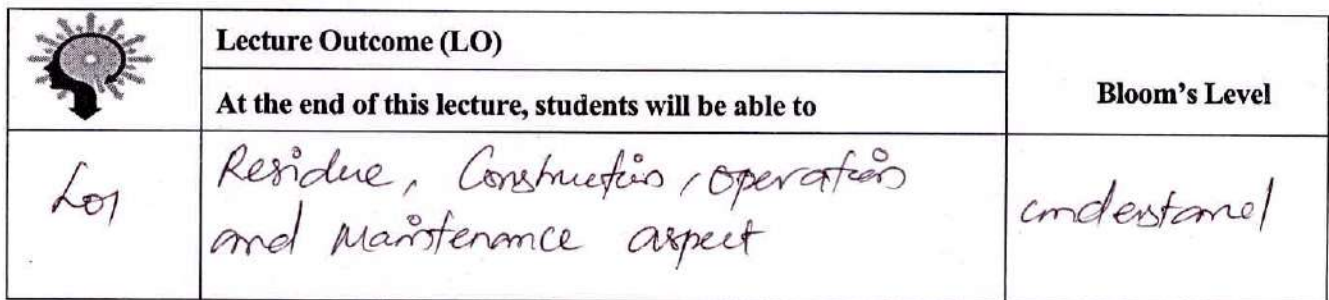 Lecture Outcome (LO)
At the end of this lecture, students will be able to
Bloom's Level
LO1
Residue, Construction, operation
and Maintenance aspect
understand